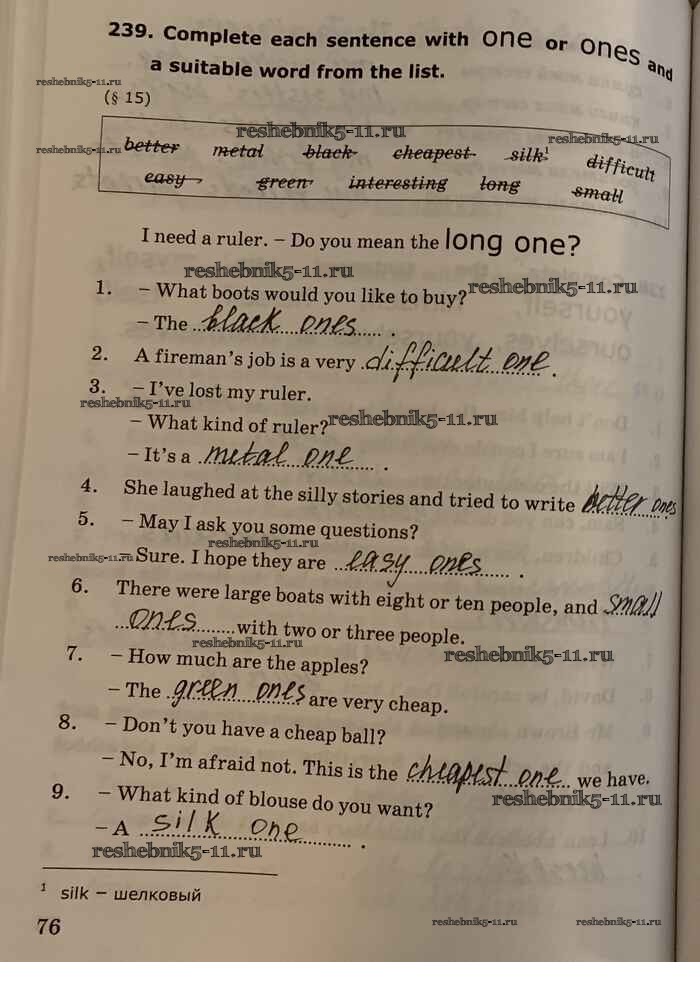 239. Complete each sentence with one or ones and
a suitable word from the list.
reshebnik5-11.ru
(§ 15)
reshebnik5-11.ru
reshebnik5-11.ru
reshebnik5-11.ru
better metal black cheapest silk¹ difficult
easy green interesting long small
I need a ruler. – Do you mean the long one?
reshebnik5-11.ru
reshebnik5-11.ru
1. – What boots would you like to buy?
– The black ones.
2. A fireman's job is a very difficult one.
3. – I've lost my ruler.
reshebnik5-11.ru
– What kind of ruler?
reshebnik5-11.ru
– It's a metal one.
4. She laughed at the silly stories and tried to write better ones
5. – May I ask you some questions?
reshebnik5-11.ru
reshebnik5-11.ru
– Sure. I hope they are easy ones.
6. There were large boats with eight or ten people, and small
ones with two or three people.
reshebnik5-11.ru
7. – How much are the apples?
reshebnik5-11.ru
– The green ones are very cheap.
8. – Don't you have a cheap ball?
– No, I'm afraid not. This is the cheapest one we have.
9. – What kind of blouse do you want?
reshebnik5-11.ru
– A silk one.
reshebnik5-11.ru
¹ silk – шелковый
76
reshebnik5-11.ru
reshebnik5-11.ru